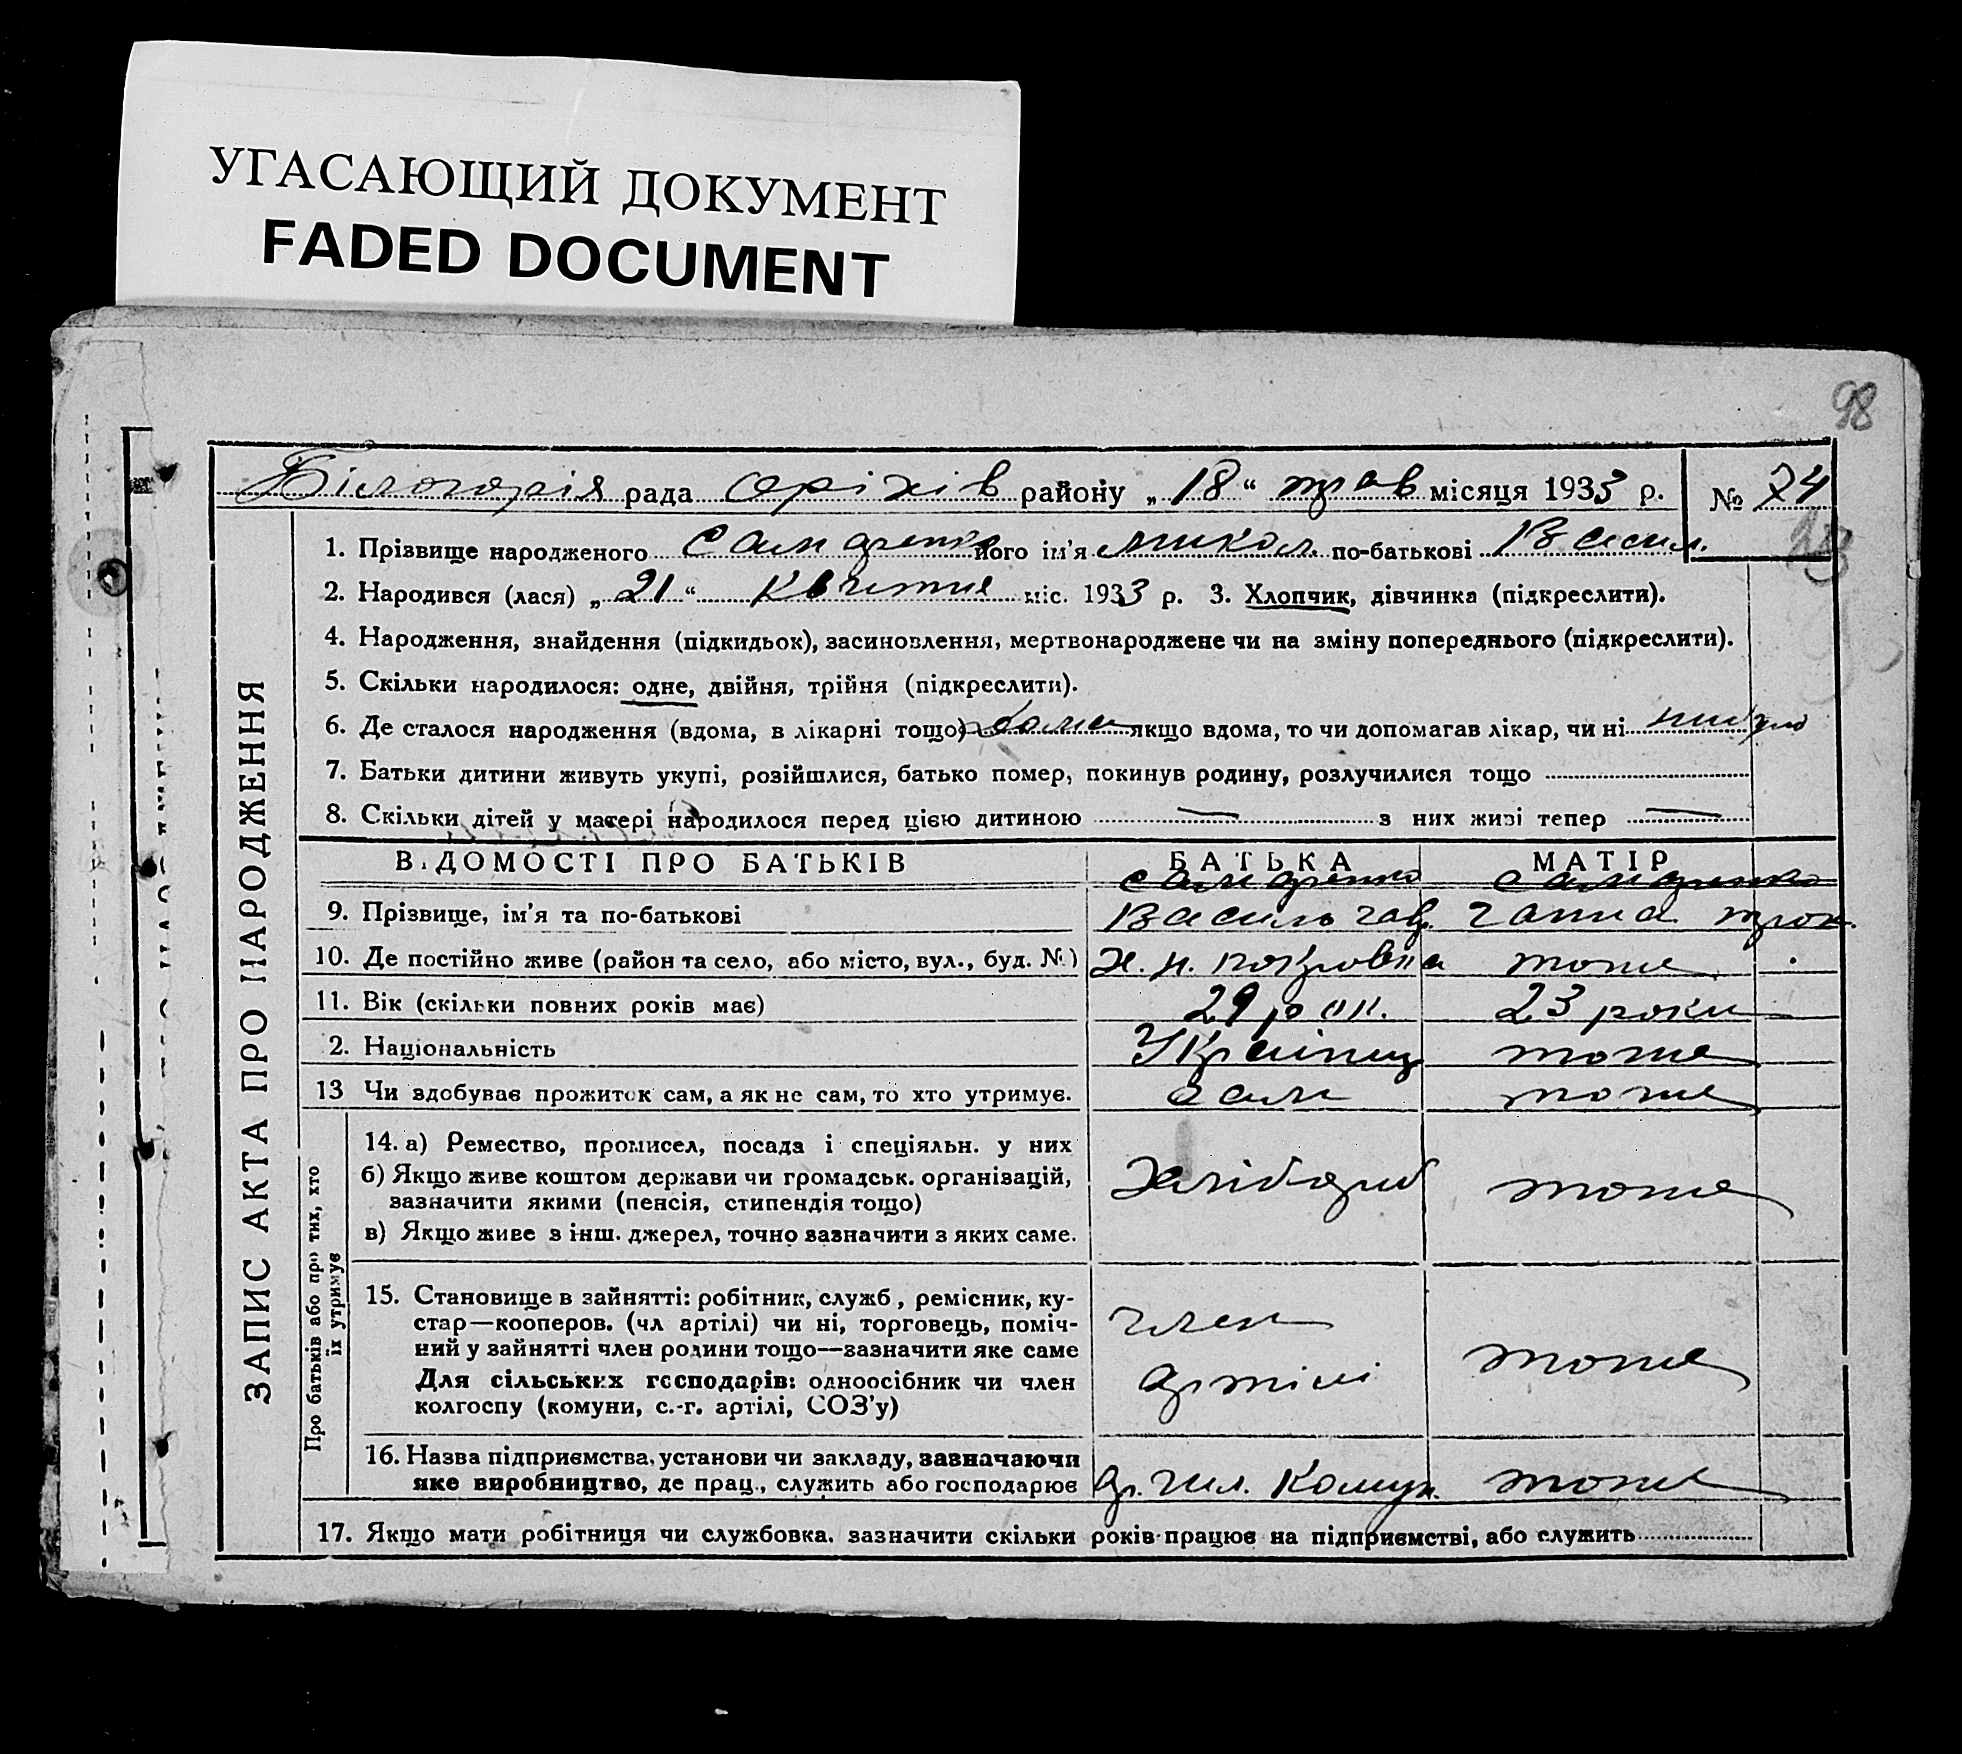 УГАСАЮЩИЙ ДОКУМЕНТ
FADED DOCUMENT
98
Білогорія рада Оріхів району „18“ трав місяця 1933 р. № 74
1. Прізвище народженого його ім'я микол. по-батькові Васил.
2. Народився (лася) „21“ квітня міс. 1933 р. 3. Хлопчик, дівчинка (підкреслити).
4. Народження, знайдення (підкидьок), засиновлення, мертвонароджене чи на зміну попереднього (підкреслити).
5. Скільки народилося: одне, двійня, трійня (підкреслити).
6. Де сталося народження (вдома, в лікарні тощо) якщо вдома, то чи допомагав лікар, чи ні
7. Батьки дитини живуть укупі, розійшлися, батько помер, покинув родину, розлучилися тощо
8. Скільки дітей у матері народилося перед цією дитиною — з них живі тепер —
ЗАПИС АКТА ПРО НАРОДЖЕННЯ
ВІДОМОСТІ ПРО БАТЬКІВ БАТЬКА МАТІР
9. Прізвище, ім'я та по-батькові Василь гав. ганна
10. Де постійно живе (район та село, або місто, вул., буд. №) х. н. покровка тоже
11. Вік (скільки повних років має) 29 рок. 23 роки
2. Національність Українц тоже
13 Чи здобуває прожиток сам, а як не сам, то хто утримує. сам тоже
Про батьків або про тих, хто
їх утримує
14. а) Ремество, промисел, посада і спеціяльн. у них
б) Якщо живе коштом держави чи громадськ. організацій,
зазначити якими (пенсія, стипендія тощо)
в) Якщо живе з інш. джерел, точно зазначити з яких саме.
хлібороб тоже
15. Становище в зайнятті: робітник, служб, ремісник, ку-
стар—кооперов. (чл артілі) чи ні, торговець, поміч-
ний у зайнятті член родини тощо—зазначити яке саме
Для сільських господарів: одноосібник чи член
колгоспу (комуни, с.-г. артілі, СОЗ'у)
член
артілі тоже
16. Назва підприємства, установи чи закладу, зазначаючи
яке виробництво, де прац., служить або господарює
ар. Шл. Комун. тоже
17. Якщо мати робітниця чи службовка, зазначити скільки років працює на підприємстві, або служить